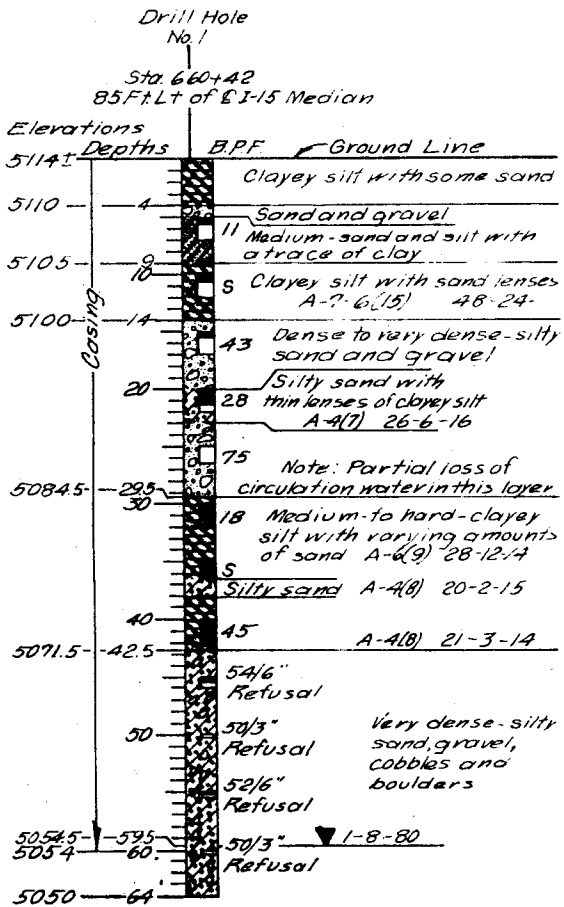 Drill Hole
No. 1
Sta. 660+42
85 Ft. Lt of ℄ I-15 Median
Elevations
Depths B.P.F. Ground Line
5114±
Clayey silt with some sand
5110 4
Sand and gravel
11
Medium-sand and silt with
a trace of clay
5105 9
10
S Clayey silt with sand lenses
A-7-6(15) 48-24-
5100 14
Casing
43 Dense to very dense-silty
sand and gravel
20 Silty sand with
28 thin lenses of clayey silt
A-4(7) 26-6-16
75
Note: Partial loss of
5084.5 29.5 circulation water in this layer
30
18 Medium-to hard-clayey
silt with varying amounts
of sand A-6(9) 28-12-14
S
Silty sand A-4(8) 20-2-15
40
45 A-4(8) 21-3-14
5071.5 42.5
54/6"
Refusal
50 50/3" Very dense-silty
Refusal sand, gravel,
cobbles and
52/6" boulders
Refusal
5054.5 59.5 1-8-80
5054 60 50/3"
Refusal
5050 64